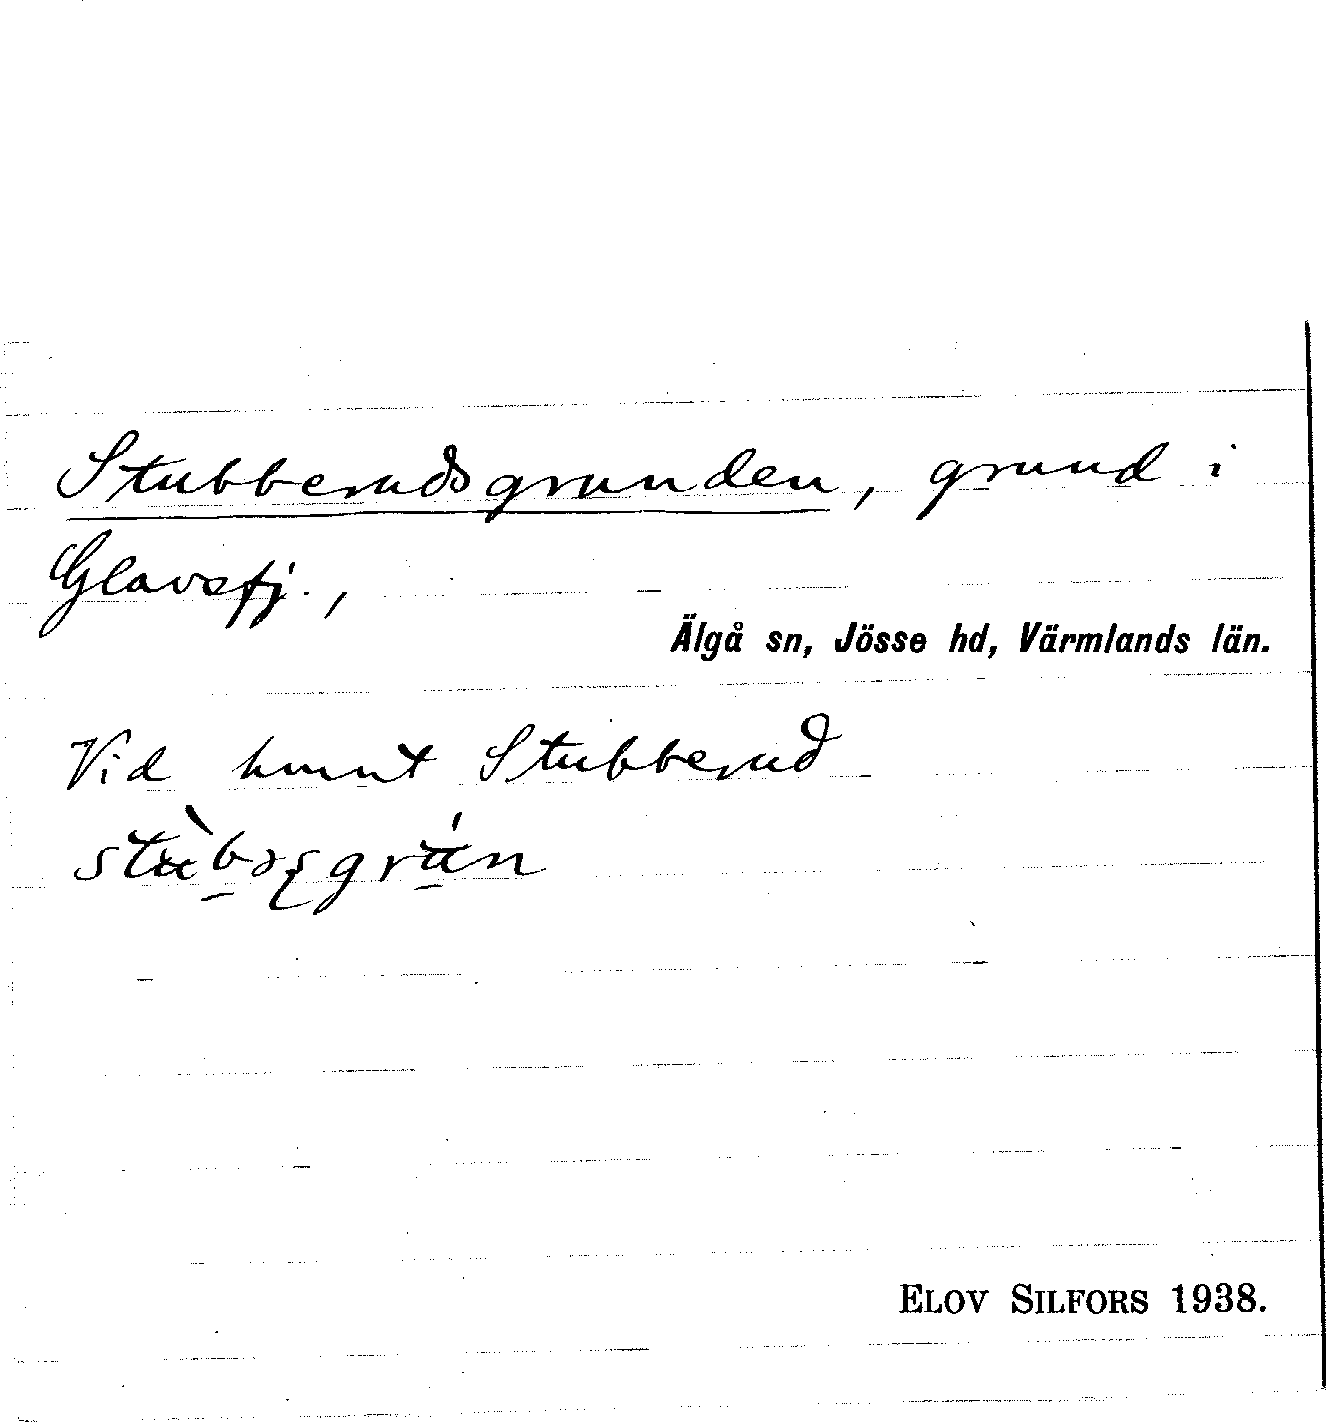 Stubberudsgrunden, grund i
Glavsfj.,
Älgå sn, Jösse hd, Värmlands län.
Vid hmnt Stubberud
ELOV SILFORS 1938.